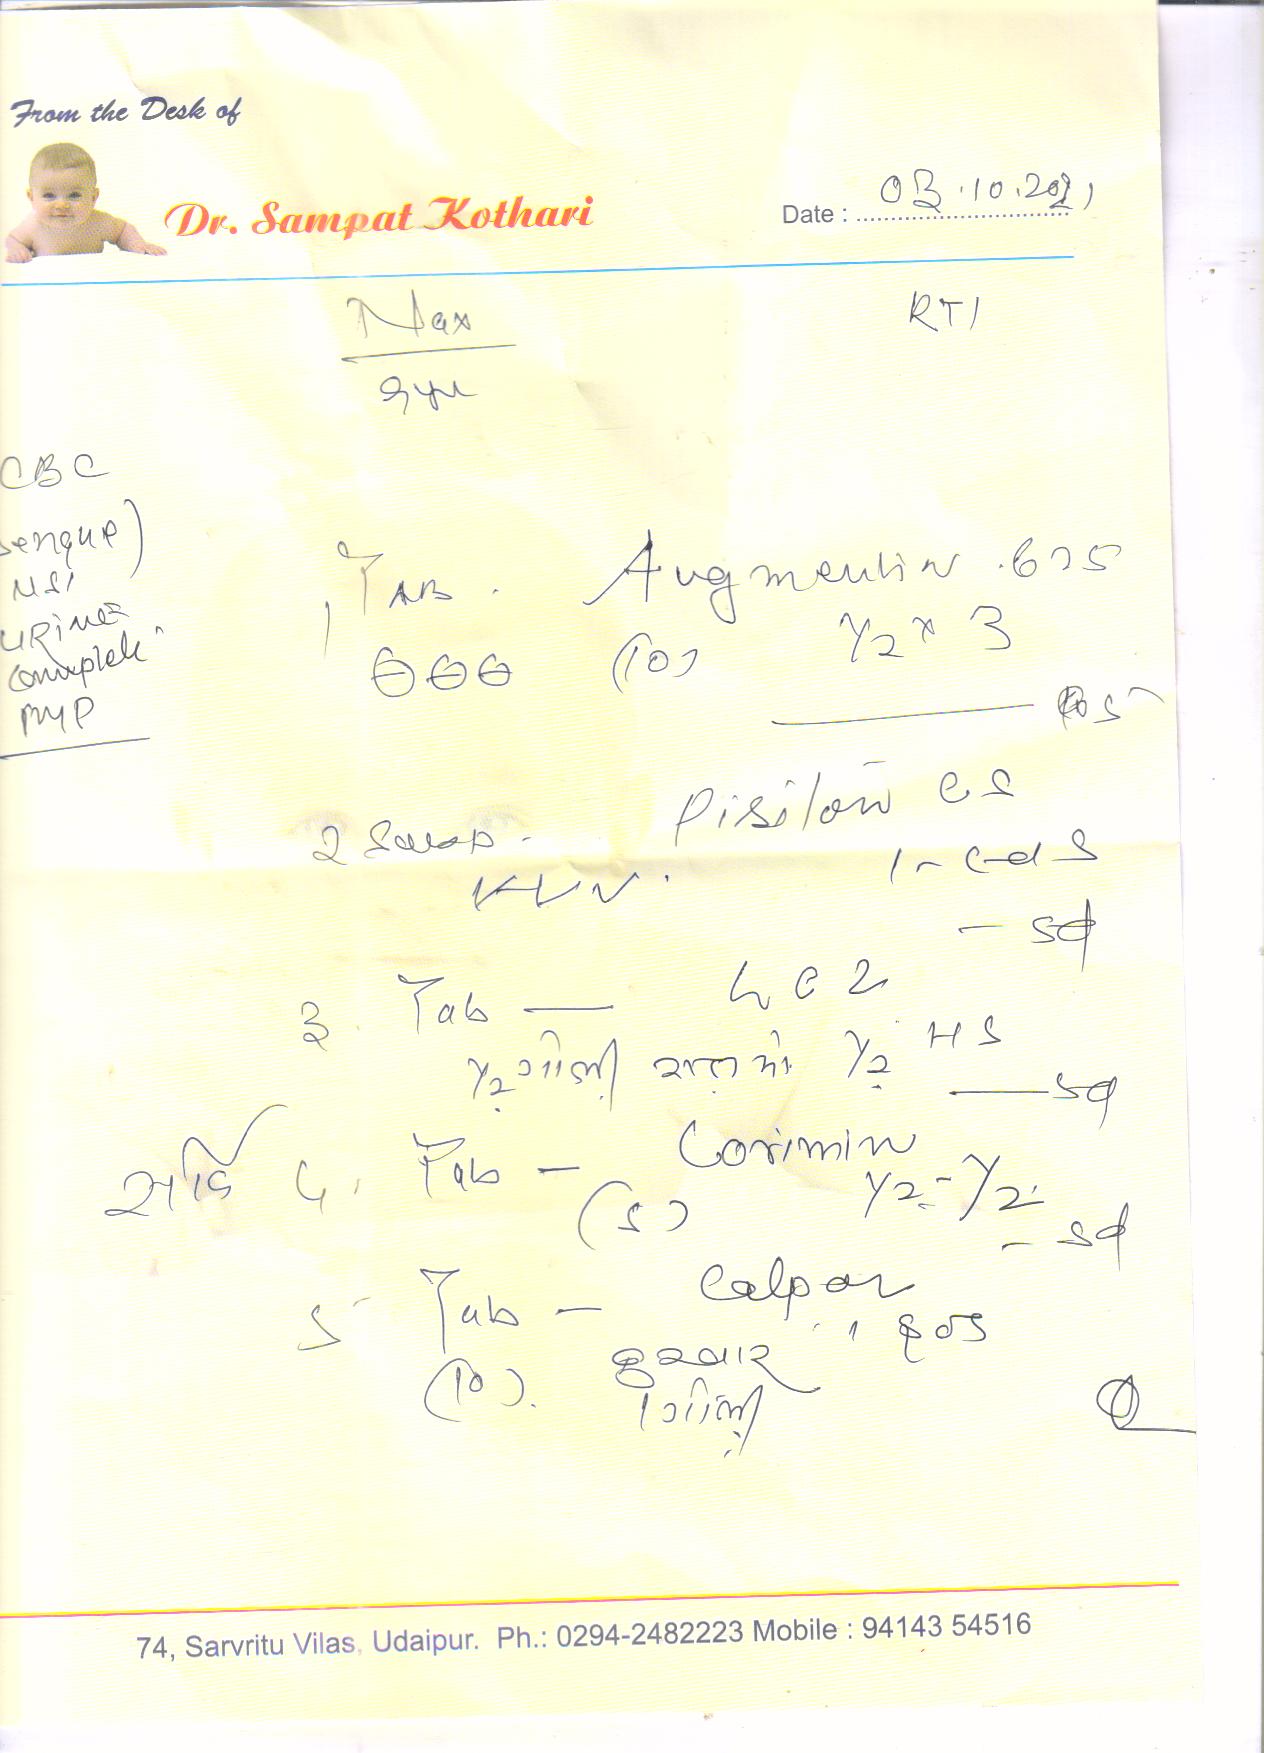 From the Desk of
Dr. Sampat Kothari
Date : 03.10.2021
Nax
RTI
9yr
CBC
Dengue)
NS1
Urine
Complete
PMP
1 TAB. Augmentin .625
(10) 1/2 x 3
2 Pisilon CS
1 - c-d S
- 5d
3. Tab — LCZ
1/2 गोली रात को 1/2 HS
— 5d
4. Tab - Corimin
(5) 1/2 - 1/2
- 5d
5 Tab - Calpol
1 SOS
(10). बुखार
1 गोली
74, Sarvritu Vilas, Udaipur. Ph.: 0294-2482223 Mobile : 94143 54516